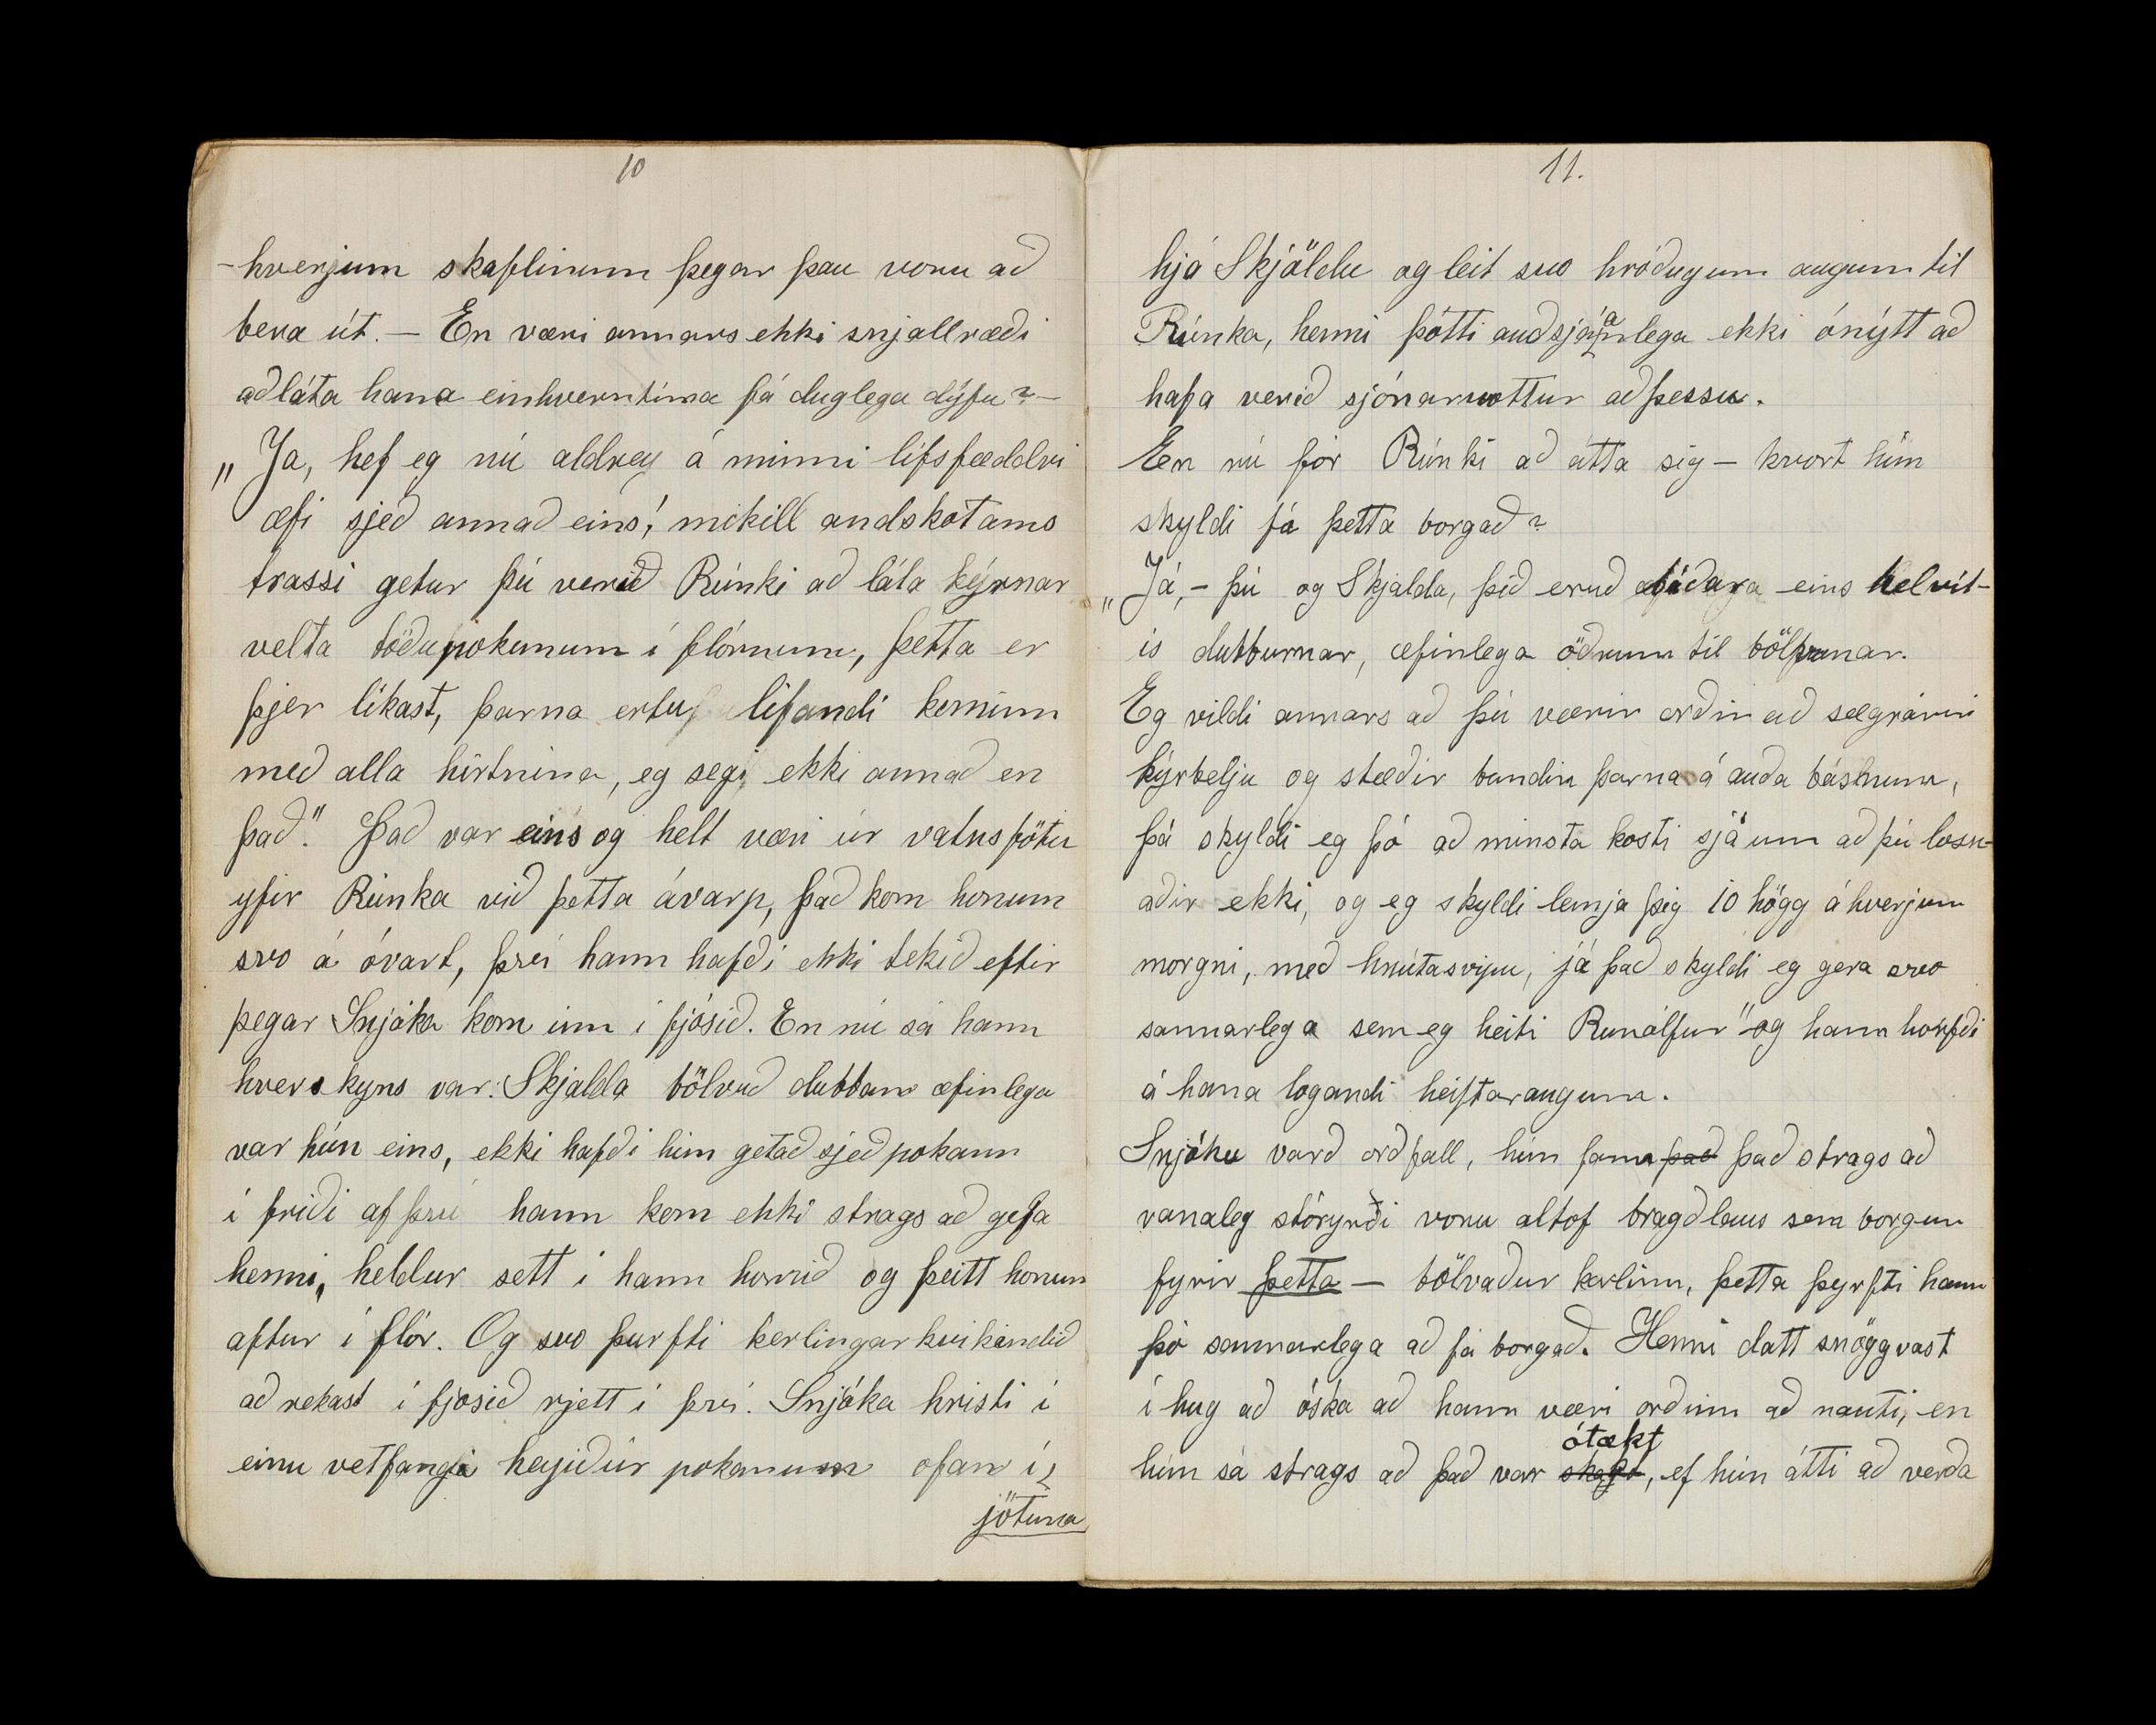 10
-hverjum skaflinum þegar þau voru að
bera út. — En væri annars ekki snjallræði
að láta hana einhverntíma fá duglega dýfu? —
„Ja, hef eg nú aldrey á minni lífsfæddri
æfi sjeð annað eins! mikill andskotans
trassi getur þú verið Rúnki að láta kýrnar
velta töðupokunum í flórnum, þetta er
þjer líkast, þarna ertu lifandi kominn
með alla hirtnina, eg segi ekki annað en
það". Það var eins og helt væri úr vatnsfötu
yfir Rúnka við þetta ávarp, það kom honum
svo á óvart, því hann hafði ekki tekið eftir
þegar Snjáka kom inn í fjósið. En nú sá hann
hverskyns var: Skjalda bölvuð dubban æfinlega
var hún eins, ekki hafði hún getað sjeð pokann
í friði af því hann kom ekki strags að gefa
henni, heldur sett í hann hornið og þeitt honum
aftur í flór. Og svo þurfti kerlingarkvikindið
að rekast í fjósið rjett í því. Snjáka hristi í
einu vetfangi heyið úr pokanum ofan í
jötuna
11.
hjá Skjöldu og leit svo hróðugum augum til
Rúnka, henni þótti auðsjáanlega ekki ónýtt að
hafa verið sjónarvottur að þessu.
En nú fór Rúnki að átta sig — hvort hún
skyldi fá þetta borgað?
„Já, - þú og Skjalda, þið eruð báðar eins helvít-
is dubburnar, æfinlega öðrum til bölfunar.
Eg vildi annars að þú værir orðin að sægrárri
kýrbelju og stæðir bundin þarna á auða básnum,
þá skyldi eg þó að minsta kosti sjá um að þú losn-
aðir ekki, og eg skyldi lemja þig 10 högg á hverjum
morgni, með hnútasvipu, já það skyldi eg gera svo
sannarlega sem eg heiti Runólfur" - og hann horfði
á hana logandi heiftaraugum.
Snjáku varð orðfall, hún fann það það strags að
vanaleg stóryrði voru altof bragðlaus sem borgun
fyrir þetta — bölvaður kerlinn, þetta þyrfti hann
þó sannarlega að fá borgað. Henni datt snöggvast
í hug að óska að hann væri orðinn að nauti, en
hún sá strags að það var ótækt, ef hún átti að verða